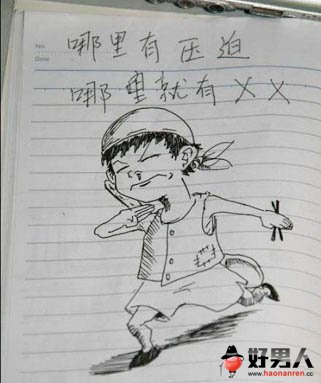 No.
Date
哪里有压迫
哪里就有XX
好男人
www.haonanren.cc